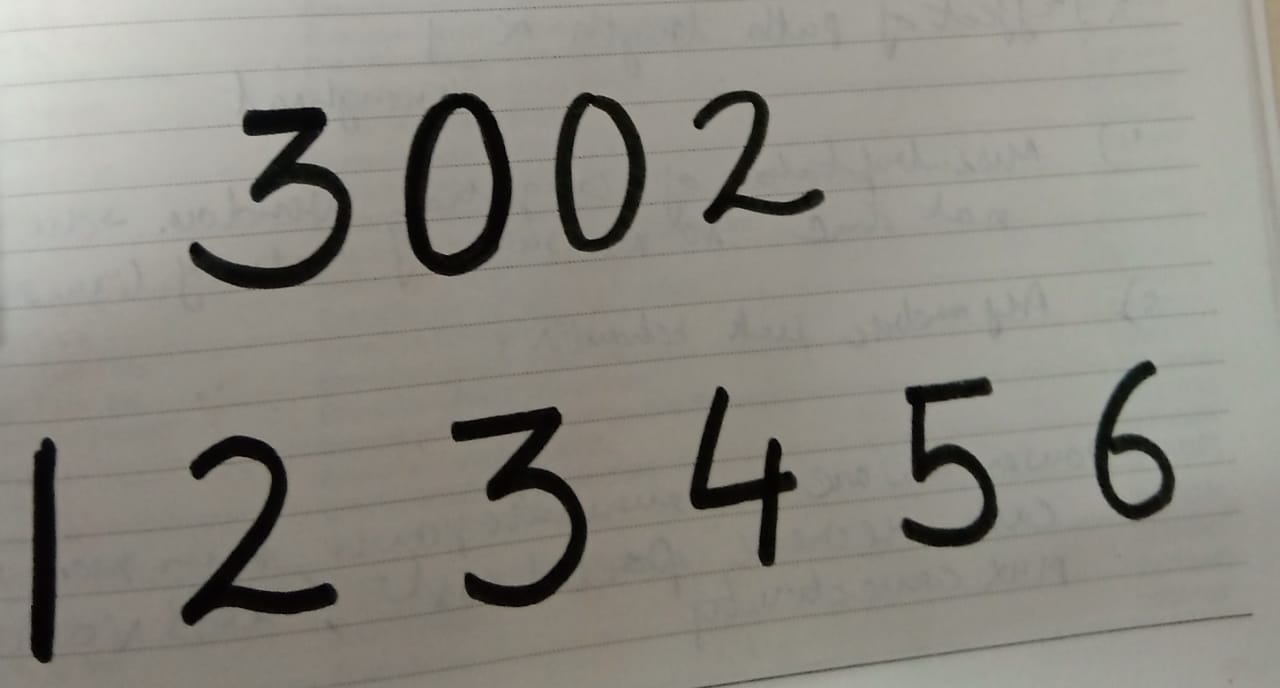 3002
1 2 3 4 5 6